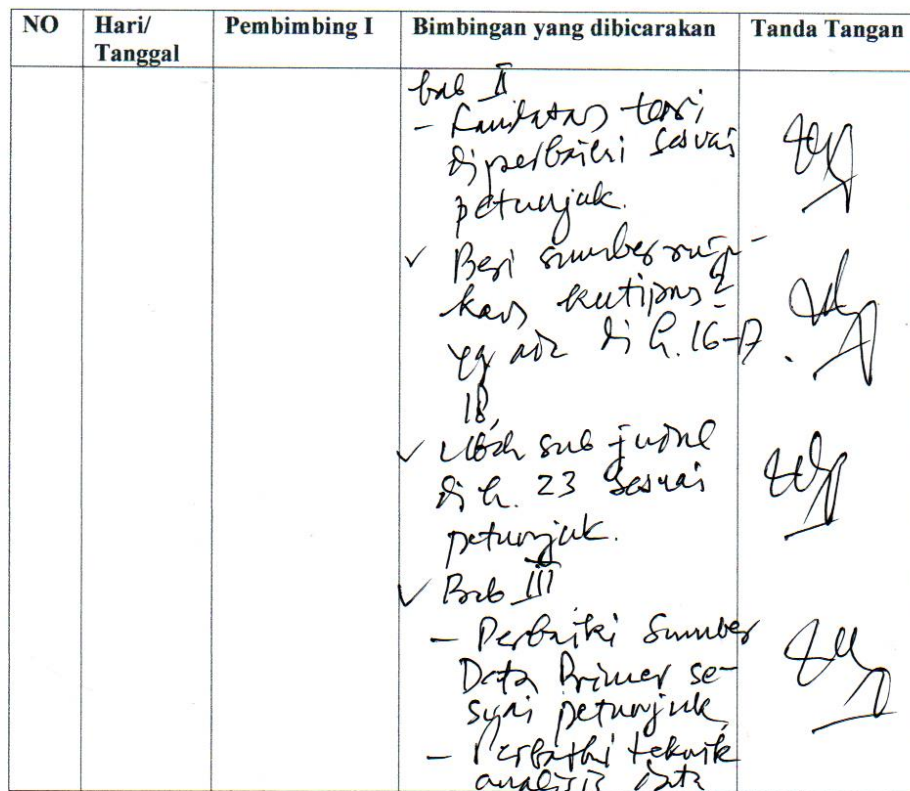 NO Hari/ Tanggal Pembimbing I Bimbingan yang dibicarakan Tanda Tangan
bab II
- Landasan teori
diperbaiki sesuai
petunjuk.
✓ Beri sumber
kutipan2
yg ada di h. 16-17.
18,
✓ Ubah sub judul
di h. 23 sesuai
petunjuk.
✓ Bab III
- Perbaiki Sumber
Data Primer se-
suai petunjuk
- Perbaiki teknik
analisis data